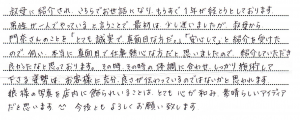 叔母に紹介され、こちらでお世話になり、もうすぐ1年が経とうとしております。
男性が一人でやっているとゆうことで最初は少し迷いましたが、叔母から
門奈さんのことを「とても誠実で、真面目な方だよ。」「安心して。」と紹介を受けた
ので、伺い、本当に真面目で仕事熱心な方だと思いましたので、紹介していただき
良かったなと思っております。その時、その時の体調に合わせ、しっかり施術して
下さる姿勢は、お客様に充分、良さが伝わっているのではないかと思われます。
娘様の写真を店内に飾られていることは、とても心が和み、素晴らしいアイディア
だと思います。今後ともよろしくお願い致します。